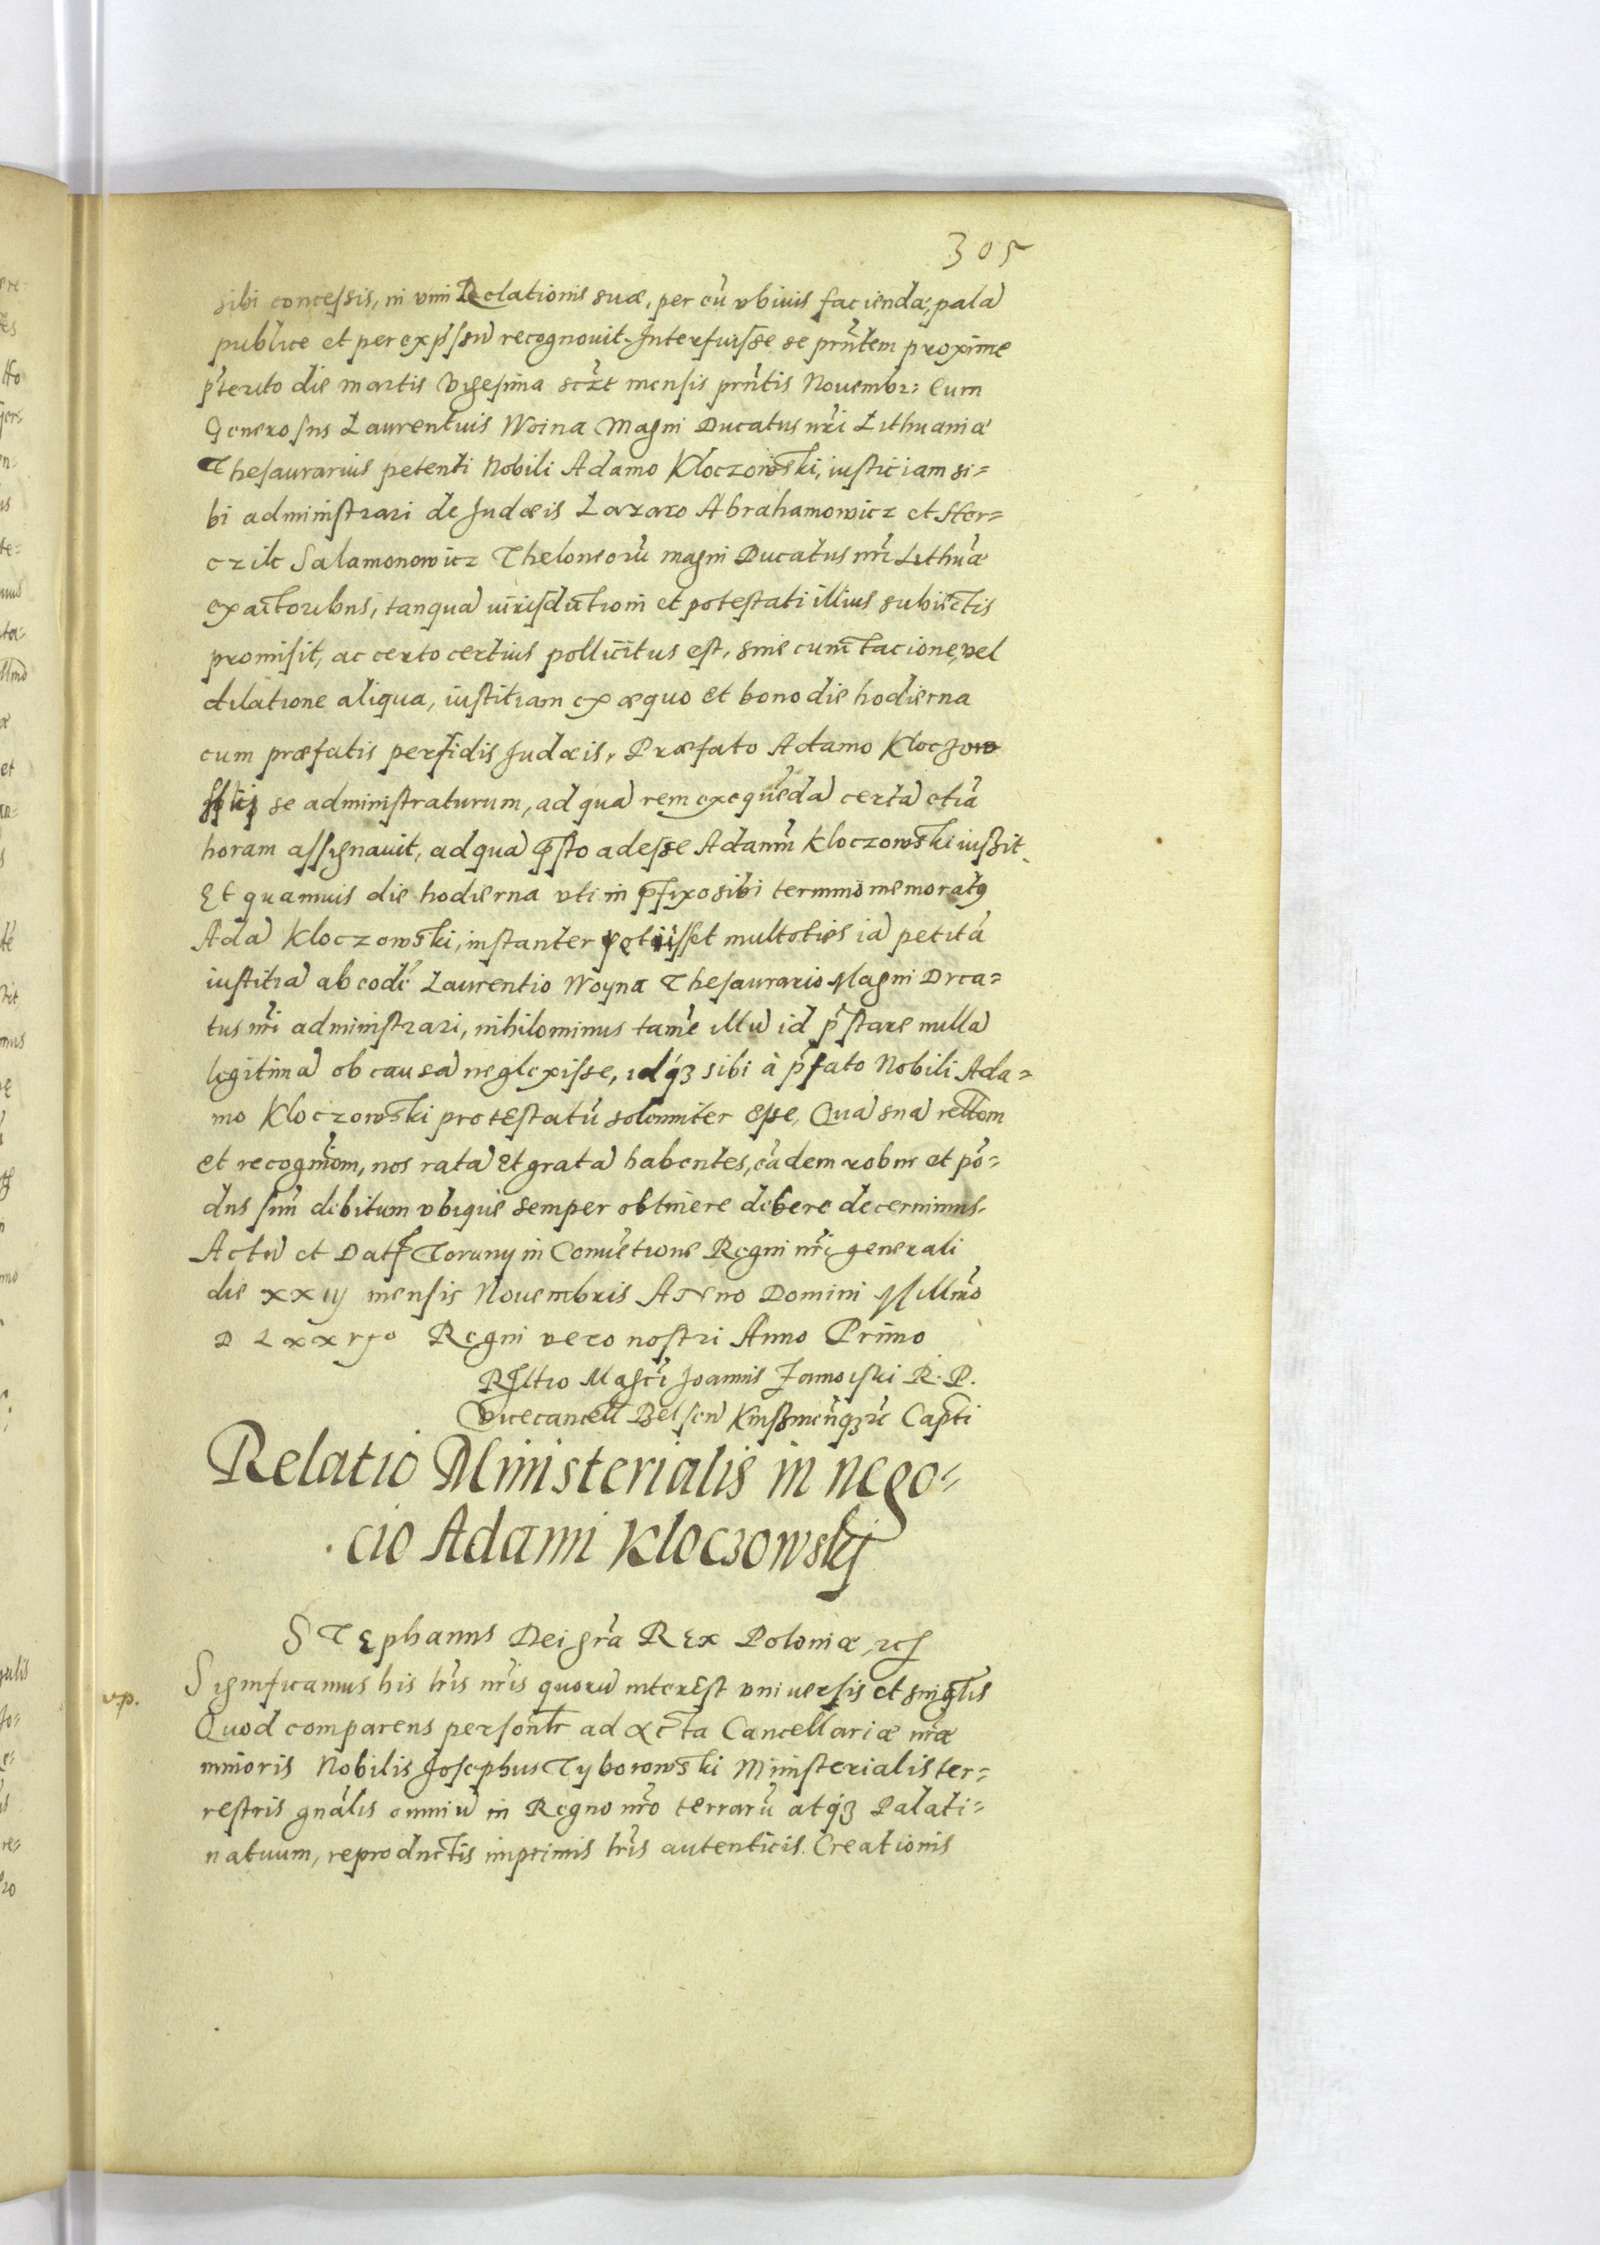 305
sibi concessis, in vim Relationis suæ, per eũ vbiuis faciendæ, palã
publice et per exp̃ssũ recognouit. Interfuisse se prñtem proxime
p̃terito die martis Vigesima mensis prñtis Nouembr: Cum
Generosus Laurentius Woina Magni Ducatus nr̃i Lithuaniæ
Thesaurarius petenti Nobili Adamo Kloczowski, iusticiam si=
bi administrari de Judæis Lazaro Abrahamowicz et Her=
czik Salamonowicz Theloneorũ magni Ducatus nr̃i Lithuã
exactoribus, tanquã iurisdictioni et potestati illius subiectis
promisit, ac certo certius pollicitus est, sine cunctacione, vel
dilatione aliqua, iustitiam ex æquo et bono die hodierna
cum præfatis perfidis Judæis, Præfato Adamo Kloczow
skij se administraturum, ad quã rem exequẽdã certã etiã
horam assignauit, ad quã p̃sto adesse Adamũ Kloczowski iussit.
Et quamuis die hodierna vti in p̃fixo sibi termino memoratꝰ
Adã Kloczowski, instanter petiisset multoties iã petitã
iustitiã ab eodẽ Laurentio Woyna Thesaurario Magni Duca=
tus nr̃i administrari, nihilominus tamẽ illũ id p̃stare nulla
legitima ob causã neglexisse, idqꝫ sibi à p̃fato Nobili Ada=
mo Kloczowski protestatũ solenniter esse, Quã suã rel̃tom
et recognĩtom, nos ratã et gratã habentes, eãdem robur et põ=
dus suũ debitum vbique semper obtinere debere decernimus.
Actũ et Dat Toruny in Conuẽtione Regni nr̃i generali
die xx iij mensis Nouembris Anno Domini Mill̃mo
D L xx vjo Regni vero nostri Anno Primo
Rel̃tio Magc̃i Joannis Zamoiski R. P.
Vicecancell Belsen̄ Capt̃i
Relatio Ministerialis in nego=
cio Adami Kloczowskij
STEphanus Dei gr̃a REx Poloniæ, ꝛcꝭ
v.p.
Significamus his lr̃is nr̃is quorũ interEst vniuersis et singl̃is
Quod comparens personl̃r ad Acta Cancellariæ nr̃æ
minoris Nobilis Josephus Tyborowski Ministerialis ter=
restris gnãlis omniũ in Regno nr̃o terrarũ atqꝫ Palati=
natuum, reproductis imprimis lr̃is autenticis Creationis